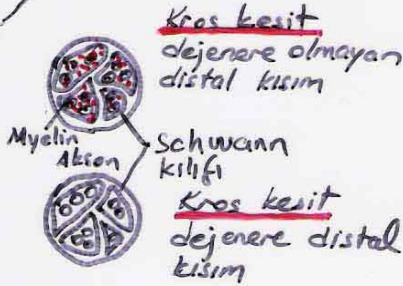 Kros kesit
dejenere olmayan
distal kısım
Myelin
Akson
Schwann
kılıfı
Kros kesit
dejenere distal
kısım